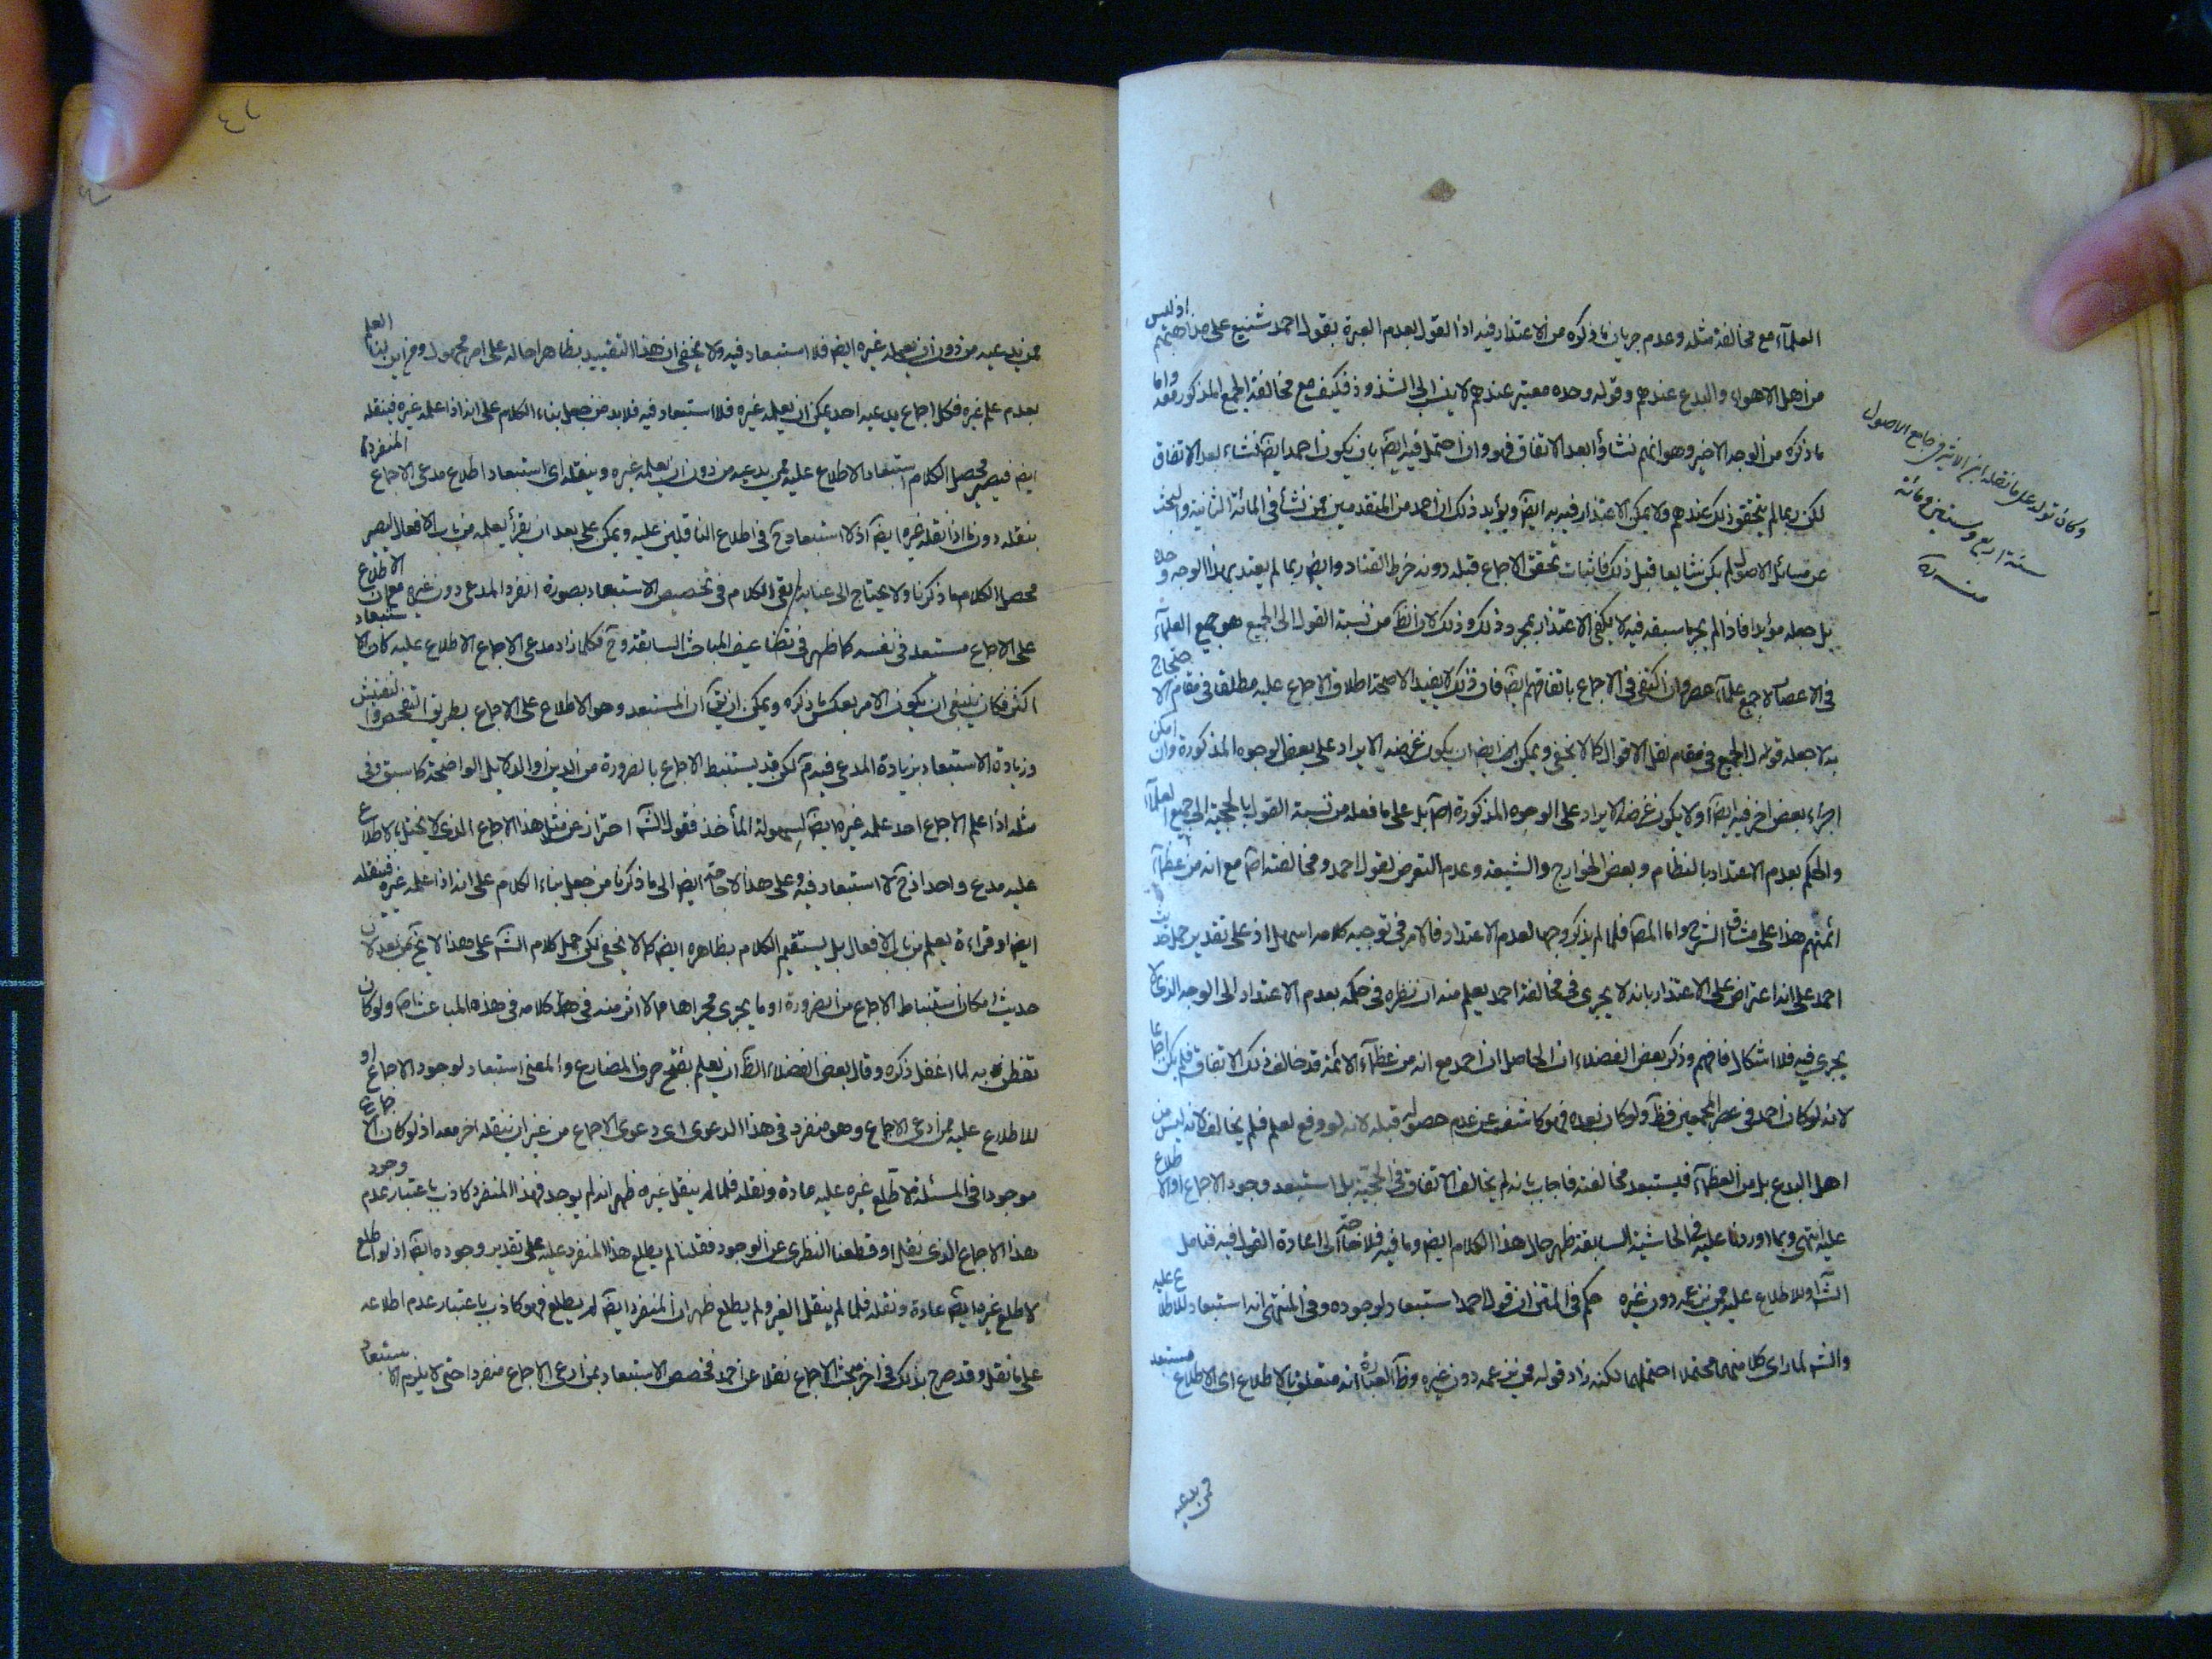 العلمآء مع مخالفة مثله وعدم جريان ما ذكره من الاعتذار فيه اذ القول بعدم العبرة بقول احمد شنيع على مذاهبهم اذ ليس
من اهل الاهواء والبدع عندهم وقوله وحده معتبر عندهم لا ينسب الى الشذوذ فكيف مع مخالفة الجمع المذكور معه واما
ما ذكره من الوجه الاخير وهو انهم نشأوا بعد الاتفاق فهو وان احتمل فيه ايضا بان يكون احمد ايضا نشاء بعد الاتفاق
لكن ربما لم يتحقق ذلك عندهم ولا يمكن الاعتذار فيه به ايضا ويؤيد ذلك ان احمد من المتقدمين ممن نشأ في المائة الثانية والبحث
عن مسائل الاصول لم يكن شايعا قبل ذلك فاثبات تحقق الاجماع قبله دونه خرط القتاد وايض ربما لم يعتد بهذا الوجه وحده
بل جعله مؤيدا فاذا لم يجر ما سبقه فيه لا يكفي الاعتذار بمجرد ذلك وذلك لان الظ من نسبة القول الى الجميع هو جميع العلمآء
في الاعصار لا جميع علمآء عصر وان اكتفى في الاجماع باتفاقهم ايض فان ذلك لا يفيد الا صحة اطلاق الاجماع عليه مطلقا في مقام الاحتجاج
به لا جعله قولا للجميع في مقام نقل الاقوال كما لا يخفى ويمكن ايض ان يكون غرضه الايراد على بعض الوجوه المذكورة وان امكن
اجراء بعض اخر فيه ايض او لا يكون غرضه الايراد على الوجوه المذكورة اصلا بل على ما فعله من نسبة القول بالحجية الى جميع العلمآء
والحكم بعدم الاعتداد بالنظام وبعض الخوارج والشيعة وعدم التعرض لقول احمد ومخالفته اصلا مع انه من عظمآء
ائمتهم هذا على مشاق الشرح واما المص فلما لم يذكر وجها لعدم الاعتداد فالامر في توجيه كلامه اسهل اذ على تقدير حمل حديث
احمد على انه اعتراض على الاعتذار بانه لا يجري في مخالفة احمد يعلم منه ان نظره في حكمه بعدم الاعتداد الى الوجه الذي لا
يجري فيه فلا اشكال فافهم وذكر بعض الفضلاء ان الحاصل ان احمد مع انه من عظمآء الائمة قد خالف ذلك الاتفاق فلم يكن اجماعا
لانه لو كان احمد في عصر المجمعين فظ ولو كان بعده فهو كاشف عن عدم حصوله قبله لانه لو وقع لعلم فلم يخالف لانه ليس من
اهل البدع بل من العظمآء فيستبعد مخالفته فاجاب بانه لم يخالف الاتفاق في الحجية بل استبعد وجود الاجماع او الاطلاع
عليه انتهى وبما اوردنا عليه في الحاشية السابقة ظهر حال هذا الكلام ايض وما فيه فلا حاجة الى اعادة القول فيه فتامل
الش او للاطلاع عليه ممن يزعمه دون غيره حكم في المتن ان قول احمد استبعاد لوجوده وفي المنتهى انه استبعاد للاطلاع عليه
والش لما راى كلا منهما محتملا احتملهما لكنه زاد قوله ممن يزعمه دون غيره وظ العبارة انه متعلق بالاطلاع اي الاطلاع مستبعد
ممن يدعيه
وكان تولده على ما نقله ابن الاثير في جامع الاصول
سنة اربع وستين ومائة
منه ره
ممن يدعيه من دون ان يعلمه غيره ايض فلا استبعاد فيه ولا يخفى ان هذا التقييد بظاهره احالة على امر مجهول ومن اين لنا العلم
بعدم علم غيره فكل اجماع يدعيه احد يمكن ان يعلمه غيره فلا استبعاد فيه فلابد من جعل بناء الكلام على انه اذا علمه غيره فينقله
ايض فيصير محصل الكلام استبعاد الاطلاع عليه ممن يدعيه من دون ان يعلمه غيره وينقله اي استبعاد اطلاع مدعي الاجماع المنفرد
بنقله دون ما اذا نقله غيره ايض اذ لا استبعاد ح في اطلاع الناقلين عليه ويمكن على بعد ان يقرأ يعلمه من باب الافعال فيصير
محصل الكلام ما ذكرنا ولا يحتاج الى عناية بقي الكلام في تخصيص الاستبعاد بصورة انفراد المدعي دون غيره مع ان الاطلاع
على الاجماع مستبعد في نفسه كما ظهر في تضاعيف المباحث السابقة وح فكلما زاد مدعي الاجماع الاطلاع عليه كان الاستبعاد
اكثر فكان ينبغي ان يكون الامر بعكس ما ذكره ويمكن ان يق ان المستبعد هو الاطلاع على الاجماع بطريق التفحص والتفتيش
وزيادة الاستبعاد بزيادة المدعي فيه م لكن قد يستنبط الاجماع بالضرورة من الدين او الدلايل الواضحة كما سبق وفي
مثله اذا علم الاجماع احد علمه غيره ايض لسهولة المأخذ فقول الش احتراز عن مثل هذا الاجماع الذي لا يختل بالاطلاع
عليه مدع واحد اذ ح لا استبعاد فيه وعلى هذا لا حاجة ايض الى ما ذكرنا من جعل بناء الكلام على انه اذا علمه غيره فينقله
ايض او قراءة يعلم من باب الافعال بل يستقيم الكلام بظاهره ايض كما لا يخفى لكن حمل كلام الش على هذا لا يخ من بعد لان
حديث امكان استنباط الاجماع من الضرورة او ما يجري مجراها مما لا اثر منه في هذه كلامه في هذه المباحث اصلا ولو كان
تفطن به لما اغفل ذكره وقال بعض الفضلاء الظ ان يعلم بفتح حرف المضارع والمعنى استبعاد لوجود الاجماع او
للاطلاع عليه ممن ادعى الاجماع وهو منفرد في هذا الدعوى اي دعوى الاجماع من غير ان ينقله اخر معه اذ لو كان الاجماع
موجودا في المسئلة لاطلع غيره عليه عادة ونقله فلما لم ينقل غيره ظهر انه لم يوجد فهذا المنفرد كاذب باعتبار عدم وجود
هذا الاجماع الذي نقل او قطعنا النظر عن الوجود فقلنا لم يطلع هذا المنفرد عليه على تقدير وجوده ايض اذ لو اطلع
لاطلع غيره ايض عادة ونقله فلما لم ينقل الغير ولم يطلع ظهر ان المنفرد ايض لم يطلع فهو كاذب باعتبار عدم اطلاعه
على ما نقل وقد صرح بذلك في اخر مبحث الاجماع نقلا عن احمد فخصص الاستبعاد بمن ادعى الاجماع منفردا حتى لا يلزم الاستبعاد